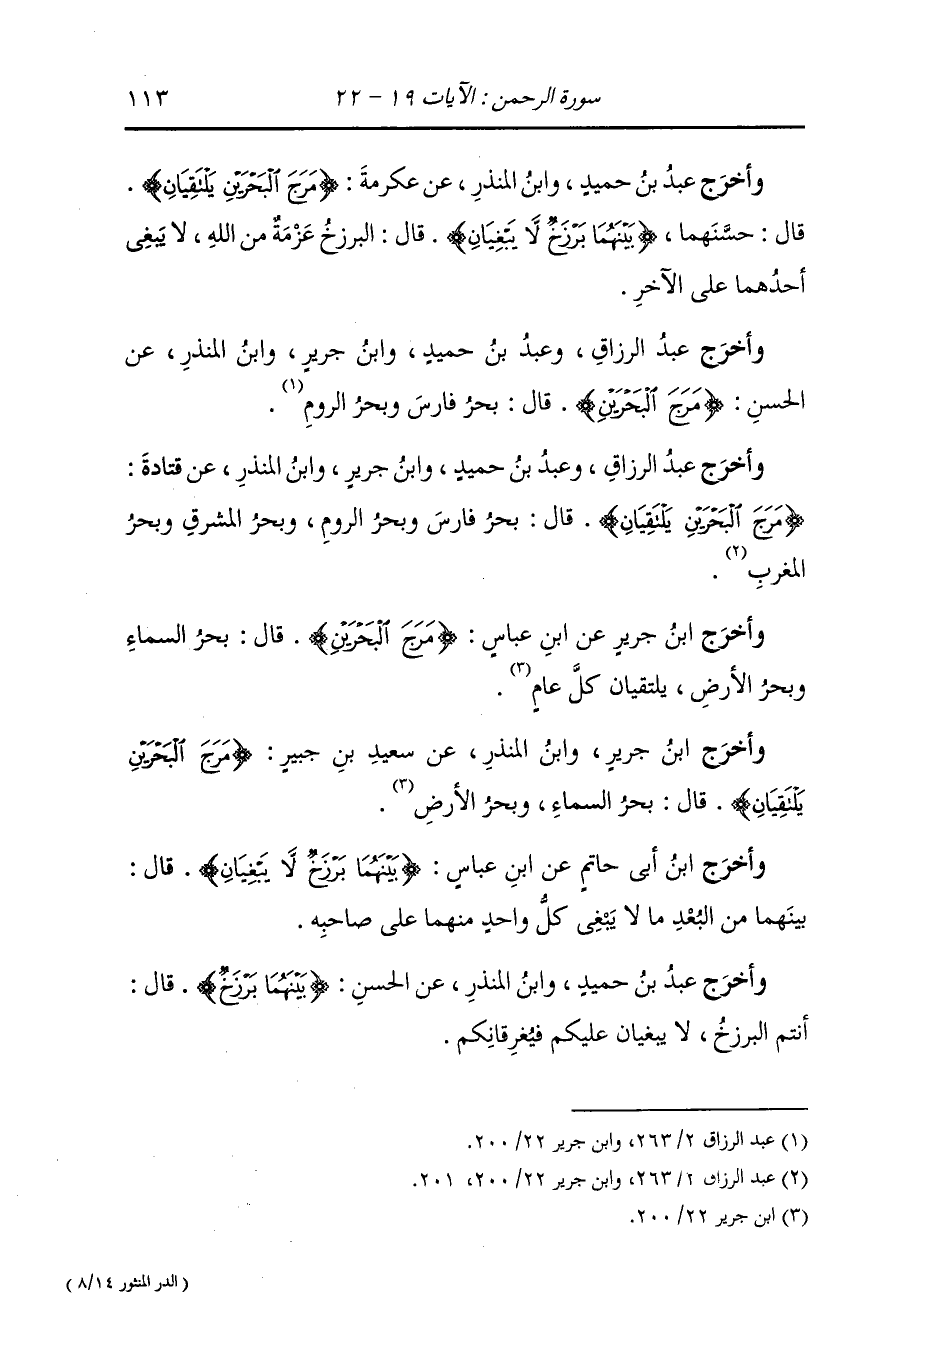 سورة الرحمن : الآيات ١٩ – ٢٢ ١١٣
وأخرَج عبدُ بنُ حميدٍ ، وابنُ المنذرِ ، عن عكرمةَ : ﴿مَرَجَ ٱلْبَحْرَيْنِ يَلْنَقِيَانِ﴾ .
قال : حسَّنَهما ، ﴿بَيْنَهُمَا بَرْزَخٌ لَّا يَبْغِيَانِ﴾ . قال : البرزخُ عَزْمَةٌ من اللهِ ، لا يَبغِى
أحدُهما على الآخرِ .
وأخرَج عبدُ الرزاقِ ، وعبدُ بنُ حميدٍ ، وابنُ جريرٍ ، وابنُ المنذرِ ، عن
الحسنِ : ﴿مَرَجَ ٱلْبَحْرَيْنِ﴾ . قال : بحرُ فارسَ وبحرُ الرومِ(١) .
وأخرَج عبدُ الرزاقِ ، وعبدُ بنُ حميدٍ ، وابنُ جريرٍ ، وابنُ المنذرِ ، عن قتادةَ :
﴿مَرَجَ ٱلْبَحْرَيْنِ يَلْتَقِيَانِ﴾ . قال : بحرُ فارسَ وبحرُ الرومِ ، وبحرُ المشرقِ وبحرُ
المغربِ(٢) .
وأخرَج ابنُ جريرٍ عن ابنِ عباسٍ : ﴿مَرَجَ ٱلْبَحْرَيْنِ﴾ . قال : بحرُ السماءِ
وبحرُ الأرضِ ، يلتقيان كلَّ عامٍ(٣) .
وأخرَج ابنُ جريرٍ ، وابنُ المنذرِ ، عن سعيدِ بنِ جبيرٍ : ﴿مَرَجَ ٱلْبَحْرَيْنِ
يَلْتَقِيَانِ﴾ . قال : بحرُ السماءِ ، وبحرُ الأرضِ(٣) .
وأخرَج ابنُ أبى حاتمٍ عن ابنِ عباسٍ : ﴿بَيْنَهُمَا بَرْزَخٌ لَّا يَبْغِيَانِ﴾ . قال :
بينَهما من البُعْدِ ما لا يَبْغِى كلُّ واحدٍ منهما على صاحبِه .
وأخرَج عبدُ بنُ حميدٍ ، وابنُ المنذرِ ، عن الحسنِ : ﴿بَيْنَهُمَا بَرْزَخٌ﴾ . قال :
أنتم البرزخُ ، لا يبغيان عليكم فيُغرِقانِكم .
(١) عبد الرزاق ٢/ ٢٦٣، وابن جرير ٢٢/ ٢٠٠.
(٢) عبد الرزاق ٢/ ٢٦٣، وابن جرير ٢٢/ ٢٠٠، ٢٠١.
(٣) ابن جرير ٢٢/ ٢٠٠.
( الدر المنثور ٨/١٤ )